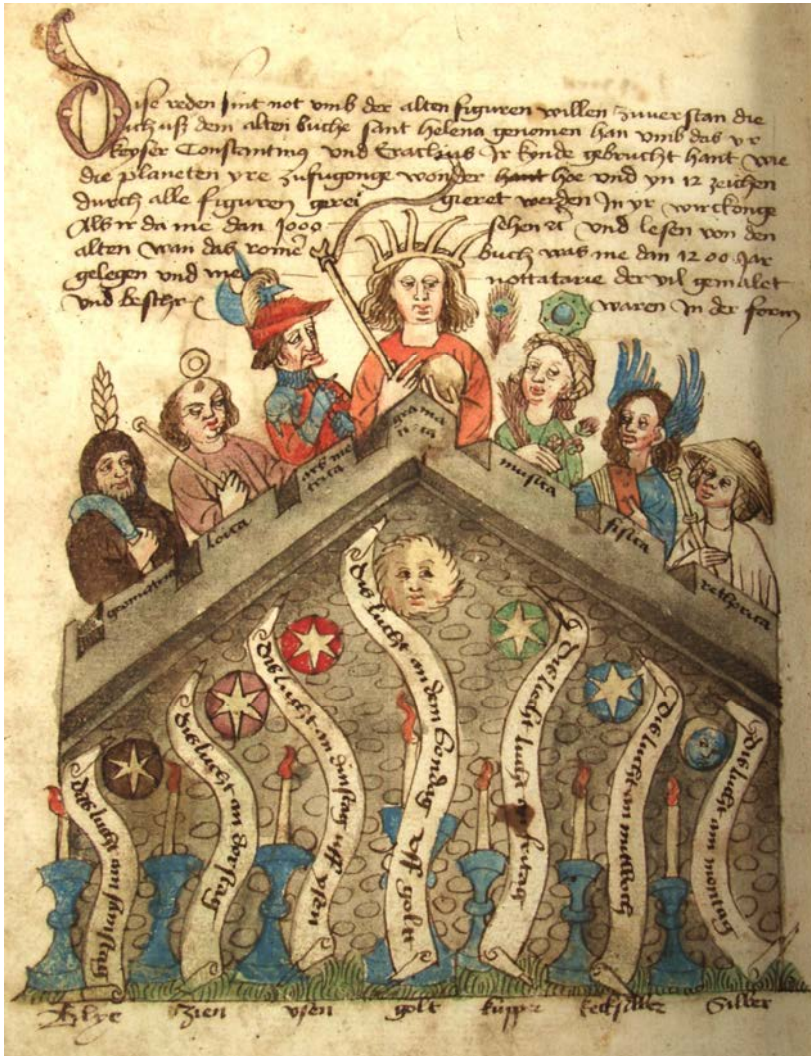 Dise reden sint not vmb der alten figuren willen zuverstan die
ich uß dem alten buche sant helena genomen han vmb das yr
keyser Constantinus vnd Eraclius Ir kynde gebrucht hant wie
die planeten yre zufugonge wonder hant hoe vnd yn 12 zeichen
durch alle figuren gerei gieret werden In yr wirckonge
Als ir da me dan 1000 sehen vnd lesen von den
alten wan das rome buch was me dan 1200 Jar
gelegen vnd me nottatarie der vil gemalet
vnd beschr waren In der form
geometria
loica
aris me
trica
grama
tica
musica
fisica
rethorica
Dis lucht am samstag
Dis lucht an dorstag
Dis lucht an dinstag vff ysen
Dis lucht an dem sondag vff golt
Die lucht am fritag
Die lucht an mitwoch
Die lucht am montag
Blye zien ysen golt kupper kecksilber Silber